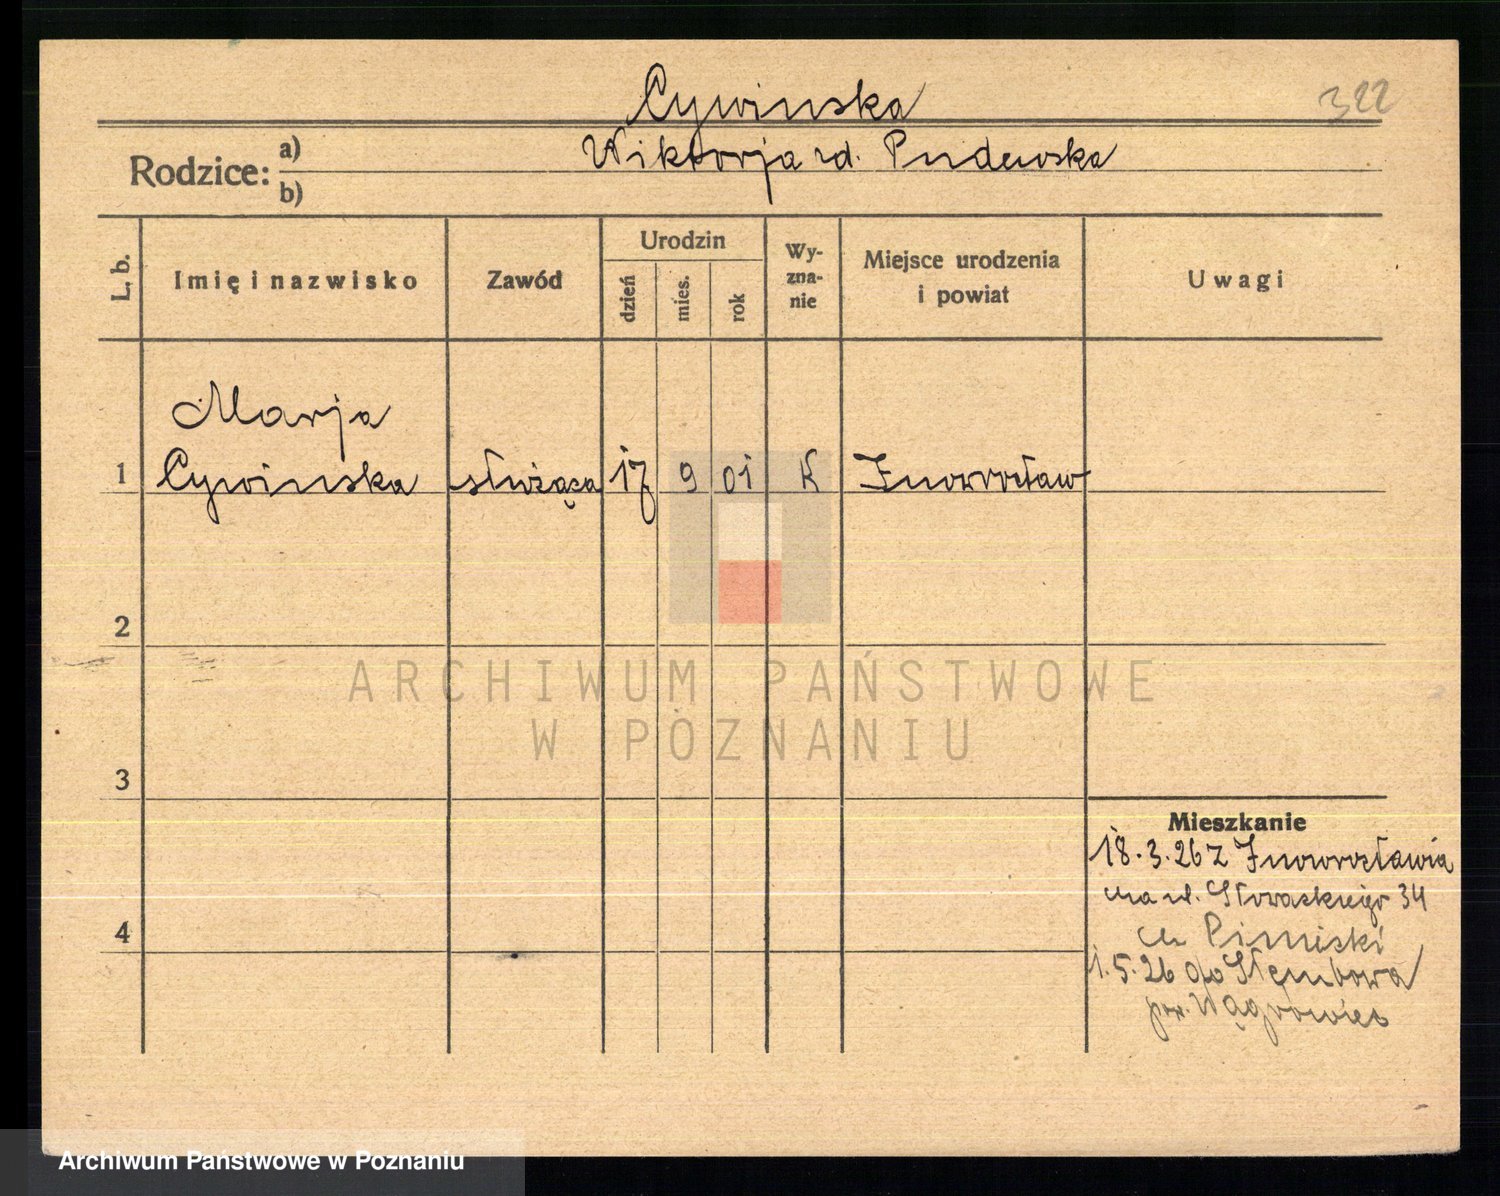 Cywinska
322
Rodzice: a)
Wiktorja rd. Pudewska
b)
L. b.
Imię i nazwisko
Zawód
Urodzin
dzień
mies.
rok
Wy-
zna-
nie
Miejsce urodzenia
i powiat
Uwagi
Marja
1 Cywinska służąca 17 9 01 K Inowrocław
2
ARCHIWUM PAŃSTWOWE
W POZNANIU
3
Mieszkanie
18.3.26 z Inowrocławia
na ul. Słowackiego 34
4
1.5.26 do
pow. Wągrowiec
Archiwum Państwowe w Poznaniu